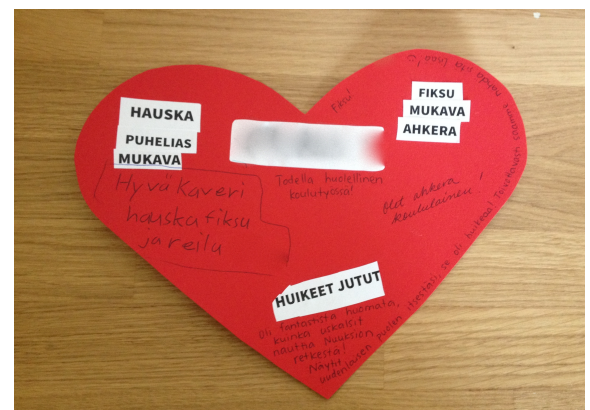 HAUSKA
PUHELIAS
MUKAVA
Hyvä kaveri
hauska fiksu
ja reilu
Fiksu!
Todella huolellinen
koulutyössä!
FIKSU
MUKAVA
AHKERA
Olet ahkera
koululainen!
HUIKEET JUTUT
Oli fantastista huomata,
kuinka uskalsit
nauttia Nuuksion
retkestä!
Näytit
uudenlaisen puolen itsestäsi, se oli huikeaa! Toivottavasti saamme nähdä sitä lisää!